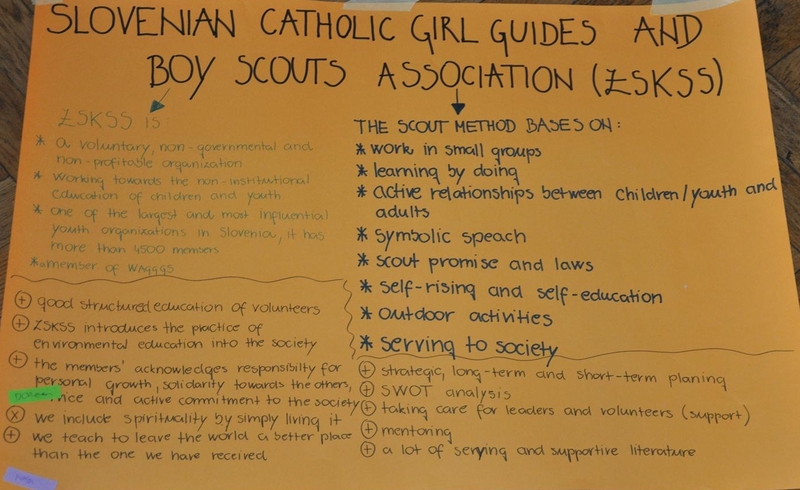 SLOVENIAN CATHOLIC GIRL GUIDES AND
BOY SCOUTS ASSOCIATION (ZSKSS)
ZSKSS IS
* a voluntary, non-governmental and
non-profitable organization
* working towards the non-institutional
education of children and youth
* one of the largest and most influential
youth organizations in Slovenia, it has
more than 4500 members
* a member of WAGGGS
THE SCOUT METHOD BASES ON:
* work in small groups
* learning by doing
* active relationships between children/youth and
adults
* symbolic speach
* scout promise and laws
* self-rising and self-education
* outdoor activities
* serving to society
+ good structured education of volunteers
+ ZSKSS introduces the practice of
environmental education into the society
+ the members' acknowledges responsibilty for
personal growth, solidarity towards the others,
and active commitment to the society
x we include spirituality by simply living it
+ we teach to leave the world a better place
than the one we have received
+ strategic, long-term and short-term planing
+ SWOT analysis
+ taking care for leaders and volunteers (support)
+ mentoring
+ a lot of serving and supportive literature